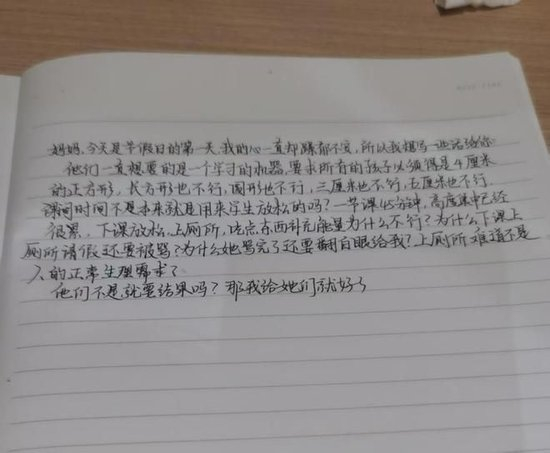 妈妈,今天是学假日的第一天,我的心一直却躁郁不安,所以我想写一些话给你
他们一直想要的是一个学习的机器,要求所有的孩子必须得是4厘米
的正方形,长方形也不行,圆形也不行,三厘米也不行,五厘米也不行,
课间时间不是本来就是用来学生放松的吗?一节课45分钟,高度集中已经
很累,下课放松,上厕所,吃点东西补充能量为什么不行?为什么下课上
厕所请假还要被骂?为什么她骂完了还要翻白眼给我?上厕所难道不是
人的正常生理需求了
他们不是就要结果吗?那我给她们就好了